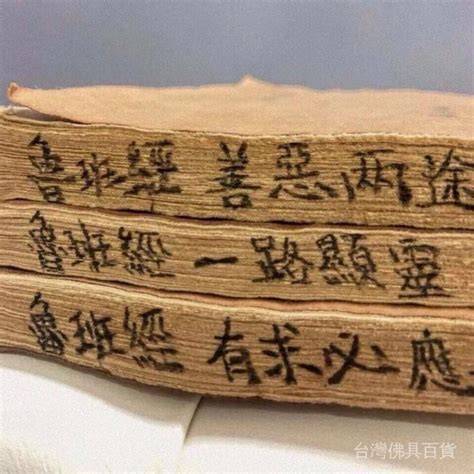 魯班經 善惡两途
魯班經 一路顯靈
魯班經 有求必應
台灣佛具百貨